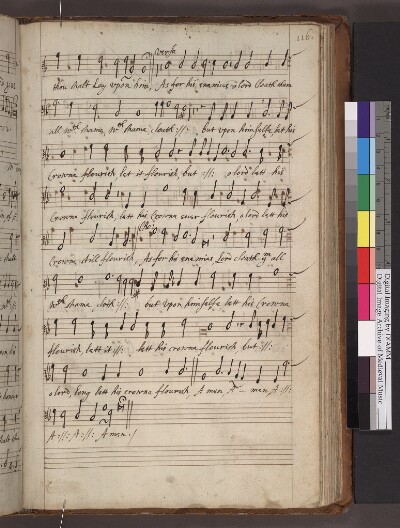 116
verse
thou shalt Lay upon him, As for his enemies o lord Cloath them
all wth shame, wth shame cloath :||: but upon himselfe let his
Crowne flourish let it flourish, but :||: o lord lett his
Crowne flourish, lett his Crowne ever flourish o lord lett his
Cho:
Crowne still flourish, As for his enemies Lord cloath ym all
wth shame cloth :||: but Upon himselfe lett his Crowne
flourish, lett it :||: lett his crowne flourish but :||:
o lord, long lett his crowne flourish, A men, A men A :||:
A :||: A :||: A men ./
Digital Imaging by DIAMM
Digital Image Archive of Medieval Music